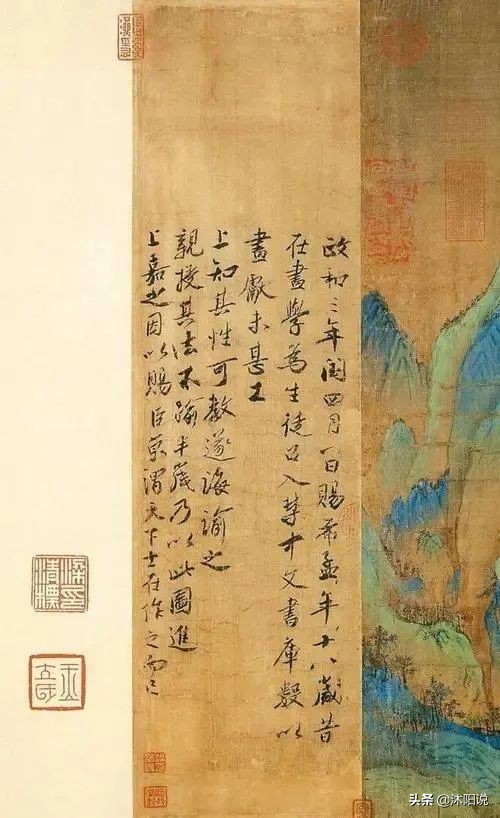 政和三年閏四月一日賜希孟年十八歲昔
在畫學為生徒召入禁中文書庫數以
畫獻未甚工
上知其性可教遂誨諭之
親授其法不踰半歲乃以此圖進
上嘉之因以賜臣京謂天下士在作之而已
头条 @沐阳说